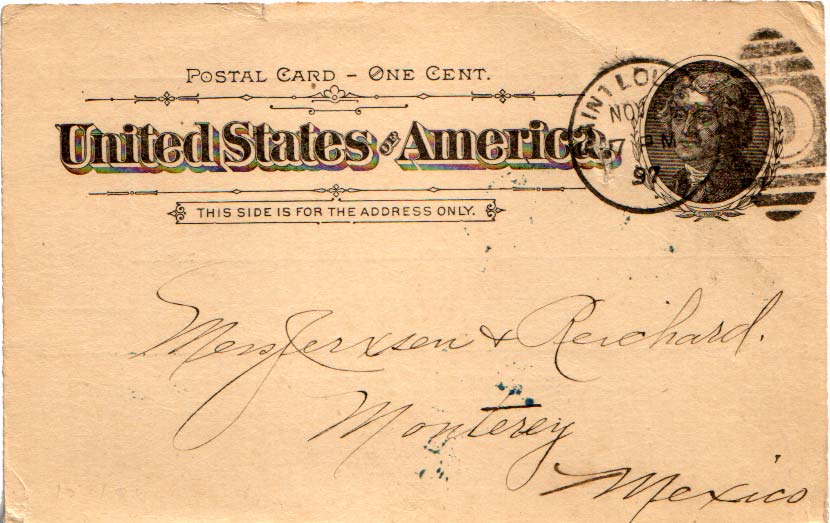 POSTAL CARD – ONE CENT.
United States of America.
THIS SIDE IS FOR THE ADDRESS ONLY.
SAINT LOUIS
NOV
7 PM
97
Mess Jerxsen & Reichard.
Monterey
Mexico